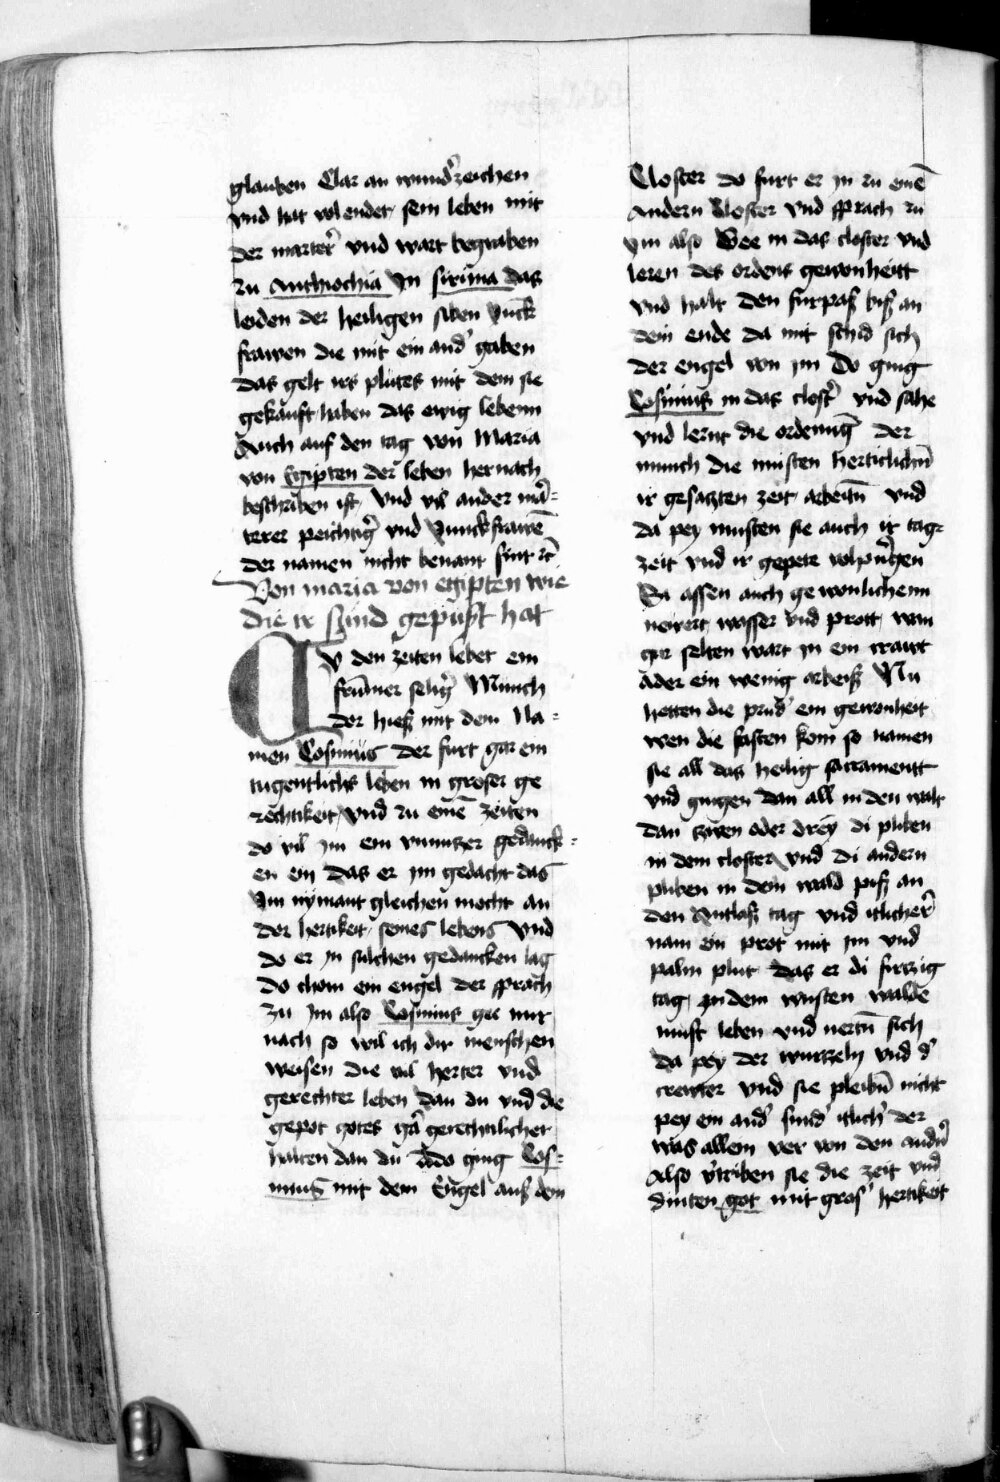 glauben Clar an wund᷑zeichen
vnd hat volendet sein leben mit
der marter᷑ vnd wart begraben
zu Anthiochia Jn siruna das
leiden der heiligen siben Junck
frawen die mit ein and᷑ gaben
das gelt irs plutes mit dem sie
gekauft haben das ewig lebenn
Auch auf den tag von Maria
von Egipten der leben hernach
beschriben ist Vnd vil ander mar᷑=
terer peichtig᷑ vnd Junckfrawē
der namen nicht benant sint
Von maria von egipten wie
die ir sund gepust hat
V den zeiten lebet ein
frumer selig᷑ Munch
der hieß mit dem Na=
men Cosimus der furt gar ein
tugentlichs leben in groser ge
rechtikeit Vnd zu eine᷑ zeiten
do vil Jm ein vnnutzer gedanck=
en ein das er im gedacht das
Jm nymant gleichen mocht an
der hertikeit seines lebens Vnd
do er Jn sulchen gedancken lag
do chom ein engel der sprach
Zu Jm also Cosimus gee mir
nach so wil ich dir menschen
weisen die vil herter vnd
gerechter leben dan du vnd die
gepot gotes gar᷑ gerechtlicher
halten dan du Ado ging Cos=
imus mit dem Engel auß dem
Closter do furt er in zu einē
Andern Closter Vnd sprach zu
ym also Gee in das closter vnd
leren des ordens gewonheitt
Vnd halt den furpaß biß an
dein ende da mit schid sich
der engel von im Do ging
Cosimus in das clost᷑ vnd sahe
vnd lernt die ordenug̅ der
munch die musten herticlichn̄
ir gesatzten zeit arbeitn̄ vnd
da pey musten sie auch ir tag=
zeit vnd ir gepete volpri̅gen
Sy assen auch gewonlichenn
neuert wasser vnd prott wan
gar selten wart Jn ein crawt
ader ein wenig arbeiß Nu
hetten die prud᷑ ein gewonheit
wen die fasten kom so namen
sie all das heilig sacramentt
vnd gingen dan all in den walt
dan zwen oder drey di pliben
in dem closter vnd di andern
pliben in dem wald piß an
den Antlaß tag vnd itlicher᷑
nam ein prot mit im vnd
palm plut das er di firtzig
tag in dem wusten walde
must leben vnd nertn̄ sich
da pey der wurtzeln vnd d᷑
crewter vnd sie pleibn̄ nicht
pey ein and᷑ sund᷑ itlich᷑ der
was allein ver von den andn̄
Also v᷑triben sie die zeit vnd
dinten got mit gros᷑ hertikeit